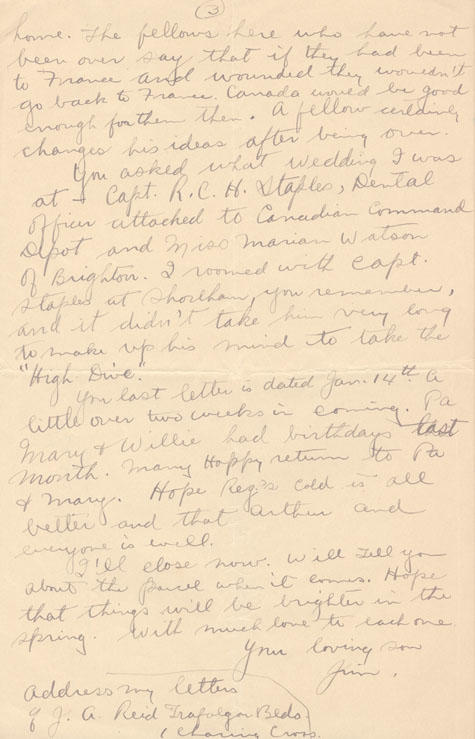 (3)
home. The fellows here who have not
been over say that if they had been
to France and wounded they wouldn't
go back to France. Canada would be good
enough for them then. A fellow certainly
changes his ideas after being over.
You asked what wedding I was
at – Capt. R.C.H. Staples, Dental
officer attached to Canadian Command
Depot and Miss Marian Watson
of Brighton. I roomed with Capt.
Staples at Shoreham, you remember,
and it didn't take him very long
to make up his mind to take the
"High Dive."
You last letter is dated Jan. 14th. A
little over two weeks in coming. Pa
Mary & Willie had birthdays last
month. Many Happy return to Pa
& Mary. Hope Reg's cold is all
better and that Arthur and
everyone is well.
I'll close now. Will tell you
about the parcel when it comes. Hope
that things will be brighter in the
spring. With much love to each one
Your loving son
Jim.
Address my letters
% J. A. Reid Trafalgar Blds
Charing Cross.